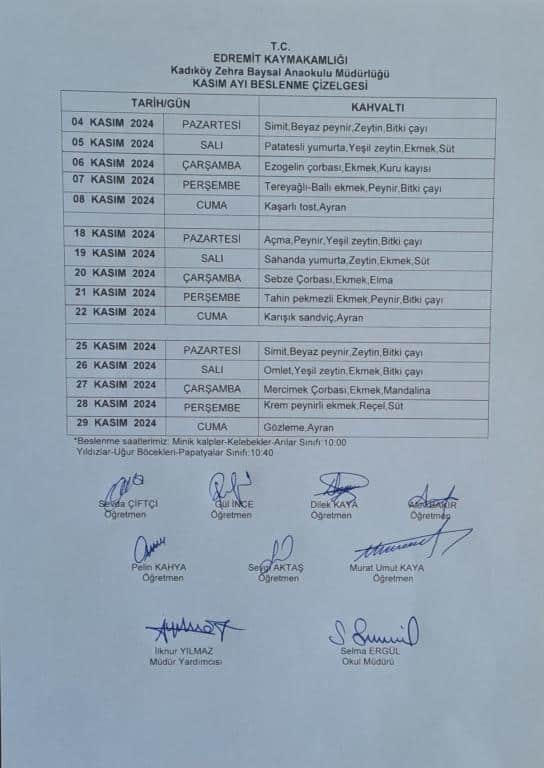 T.C.
EDREMİT KAYMAKAMLIĞI
Kadıköy Zehra Baysal Anaokulu Müdürlüğü
KASIM AYI BESLENME ÇİZELGESİ
TARİH/GÜN KAHVALTI
04 KASIM 2024 PAZARTESİ Simit,Beyaz peynir,Zeytin,Bitki çayı
05 KASIM 2024 SALI Patatesli yumurta,Yeşil zeytin,Ekmek,Süt
06 KASIM 2024 ÇARŞAMBA Ezogelin çorbası,Ekmek,Kuru kayısı
07 KASIM 2024 PERŞEMBE Tereyağlı-Ballı ekmek,Peynir,Bitki çayı
08 KASIM 2024 CUMA Kaşarlı tost,Ayran
18 KASIM 2024 PAZARTESİ Açma,Peynir,Yeşil zeytin,Bitki çayı
19 KASIM 2024 SALI Sahanda yumurta,Zeytin,Ekmek,Süt
20 KASIM 2024 ÇARŞAMBA Sebze Çorbası,Ekmek,Elma
21 KASIM 2024 PERŞEMBE Tahin pekmezli Ekmek,Peynir,Bitki çayı
22 KASIM 2024 CUMA Karışık sandviç,Ayran
25 KASIM 2024 PAZARTESİ Simit,Beyaz peynir,Zeytin,Bitki çayı
26 KASIM 2024 SALI Omlet,Yeşil zeytin,Ekmek,Bitki çayı
27 KASIM 2024 ÇARŞAMBA Mercimek Çorbası,Ekmek,Mandalina
28 KASIM 2024 PERŞEMBE Krem peynirli ekmek,Reçel,Süt
29 KASIM 2024 CUMA Gözleme,Ayran
*Beslenme saatlerimiz: Minik kalpler-Kelebekler-Arılar Sınıfı:10:00
Yıldızlar-Uğur Böcekleri-Papatyalar Sınıfı:10:40
Sevda ÇİFTÇİ Gül İNCE Dilek KAYA
Öğretmen Öğretmen Öğretmen Öğretmen
Pelin KAHYA Sevgi AKTAŞ Murat Umut KAYA
Öğretmen Öğretmen Öğretmen
İlknur YILMAZ Selma ERGÜL
Müdür Yardımcısı Okul Müdürü